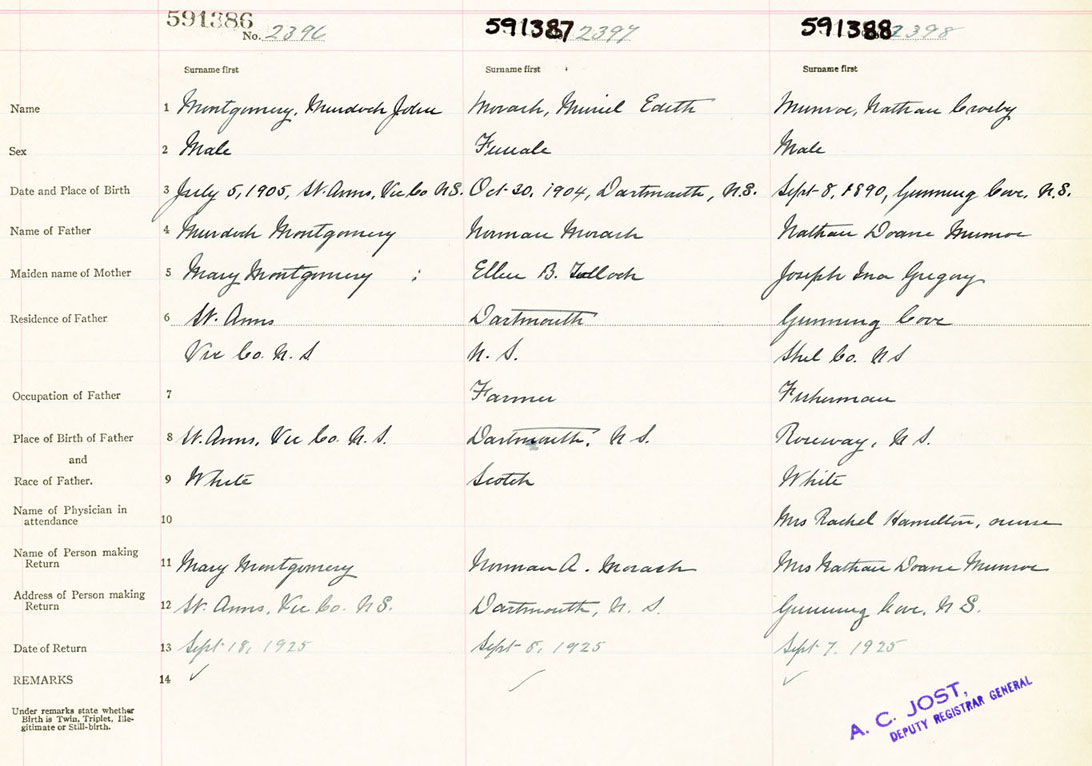 591386 591387 591388
No. 2396 2397 2398
Surname first Surname first Surname first
Name 1 Montgomery, Murdoch John Morash, Muriel Edith Munroe, Nathan Crosby
Sex 2 Male Female Male
Date and Place of Birth 3 July 5, 1905, St. Anns, Vic Co N.S. Oct 30, 1904, Dartmouth, N.S. Sept 8, 1890, Gunning Cove, N.S.
Name of Father 4 Murdoch Montgomery Norman Morash Nathan Doane Munroe
Maiden name of Mother 5 Mary Montgomery ; Ellen B. Tulloch Joseph Ina Gregory
Residence of Father 6 St. Anns Dartmouth Gunning Cove
Vic Co. N. S N. S. Shel Co. N S
Occupation of Father 7 Farmer Fisherman
Place of Birth of Father 8 St. Anns, Vic Co. N. S. Dartmouth, N S. Roseway, N S.
and
Race of Father. 9 White Scotch White
Name of Physician in
attendance 10 Mrs Rachel Hamilton, nurse
Name of Person making
Return 11 Mary Montgomery Norman A. Morash Mrs Nathan Doane Munroe
Address of Person making
Return 12 St. Anns, Vic Co. N S. Dartmouth, N. S. Gunning Cove, N S.
Date of Return 13 Sept 18, 1925 Sept 8, 1925 Sept 7, 1925
REMARKS 14
Under remarks state whether
Birth is Twin, Triplet, Ille-
gitimate or Still-birth.
A. C. JOST,
DEPUTY REGISTRAR GENERAL